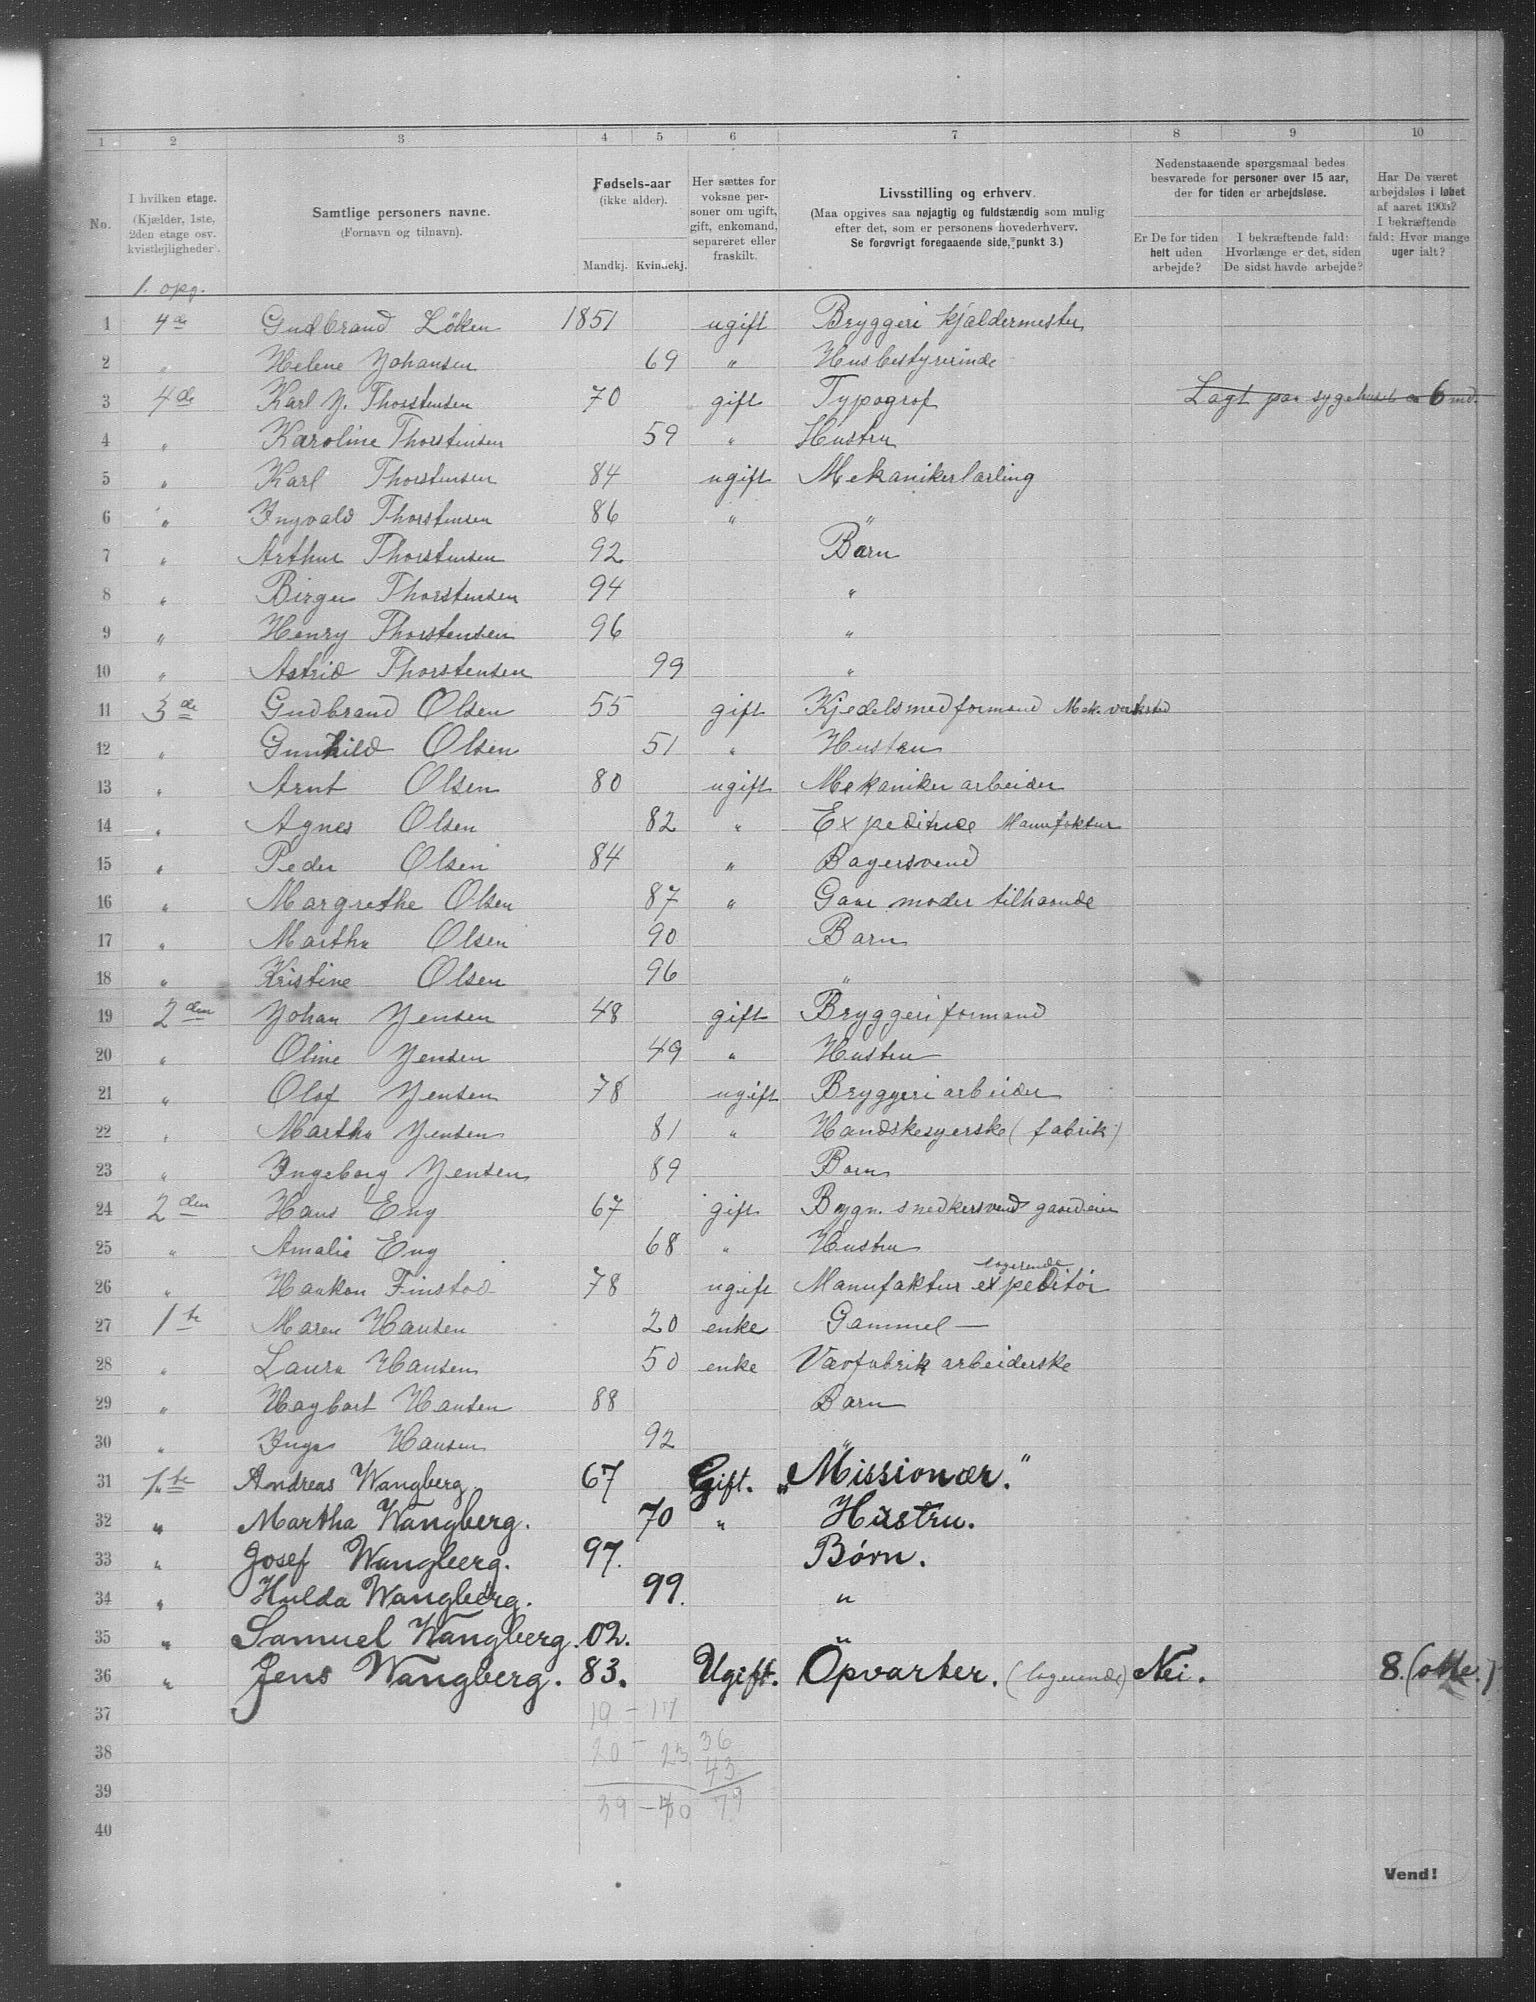 1 2 3 4 5 6 7 8 9 10
No.
I hvilken etage.
(Kjælder, 1ste, 2den etage osv. kvistlejligheder)
Samtlige personers navne.
(Fornavn og tilnavn).
Fødsels-aar
(ikke alder).
Mandkj. Kvindekj.
Her sættes for voksne personer om ugift, gift, enkemand, separeret eller fraskilt.
Livsstilling og erhverv.
(Maa opgives saa nøjagtig og fuldstændig som mulig efter det, som er personens hovederhverv.
Se forøvrigt foregaaende side, punkt 3.)
Nedenstaaende spørgsmaal bedes besvarede for personer over 15 aar, der for tiden er arbejdsløse.
Er De for tiden helt uden arbejde?
I bekræftende fald: Hvorlænge er det, siden De sidst havde arbejde?
Har De været arbejdsløs i løbet af aaret 1905? I bekræftende fald: Hvor mange uger ialt?
1. opg.
1 4de Gudbrand Löken 1851 ugift Bryggeri kjældermester
2 " Helene Johansen 69 " Husbestyrerinde
3 4de Karl J. Thorstensen 70 gift Typograf Lagt paa sygehuset 6 md.
4 " Karoline Thorstensen 59 " Hustru
5 " Karl Thorstensen 84 ugift Mekanikerlærling
6 " Ingvald Thorstensen 86 " "
7 " Arthur Thorstensen 92 Barn
8 " Birger Thorstensen 94 "
9 " Henry Thorstensen 96 "
10 " Astrid Thorstensen 99 "
11 3de Gudbrand Olsen 55 gift Kjedelsmedformand Mek. verksted
12 " Gunhild Olsen 51 " Hustru
13 " Arnt Olsen 80 ugift Mekaniker arbeider
14 " Agnes Olsen 82 " Expeditrice Manufaktur
15 " Peder Olsen 84 " Bagersvend
16 " Margrethe Olsen 87 " Gaar moder tilhaande
17 " Martha Olsen 90 Barn
18 " Kristine Olsen 96 "
19 2den Johan Jensen 48 gift Bryggeriformand
20 " Oline Jensen 49 " Hustru
21 " Olaf Jensen 78 ugift Bryggeriarbeider
22 " Martha Jensen 81 " Handskesyerske (fabrik)
23 " Ingeborg Jensen 89 Barn
24 2den Hans Eng 67 gift Bygn. snedkersvend gaardeier
25 " Amalie Eng 68 " Hustru
26 " Haakon Finstad 78 ugift Manufaktur expeditör logerende
27 1te Maren Hansen 20 enke Gammel —
28 " Laura Hansen 50 enke Vævfabrik arbeiderske
29 " Hagbart Hansen 88 Barn
30 " Inga Hansen 92 "
31 1te Andreas Wangberg 67 Gift. "Missionær."
32 " Martha Wangberg. 70 " Hustru.
33 " Josef Wangberg. 97. Børn.
34 " Hulda Wangberg. 99. "
35 " Samuel Wangberg. 02. "
36 " Jens Wangberg. 83. Ugift. Opvarter. (logerende) Nei. 8. (otte.)
37 19 – 17
38 20 – 23 36
39 43
40 39 – 40 79
Vend!